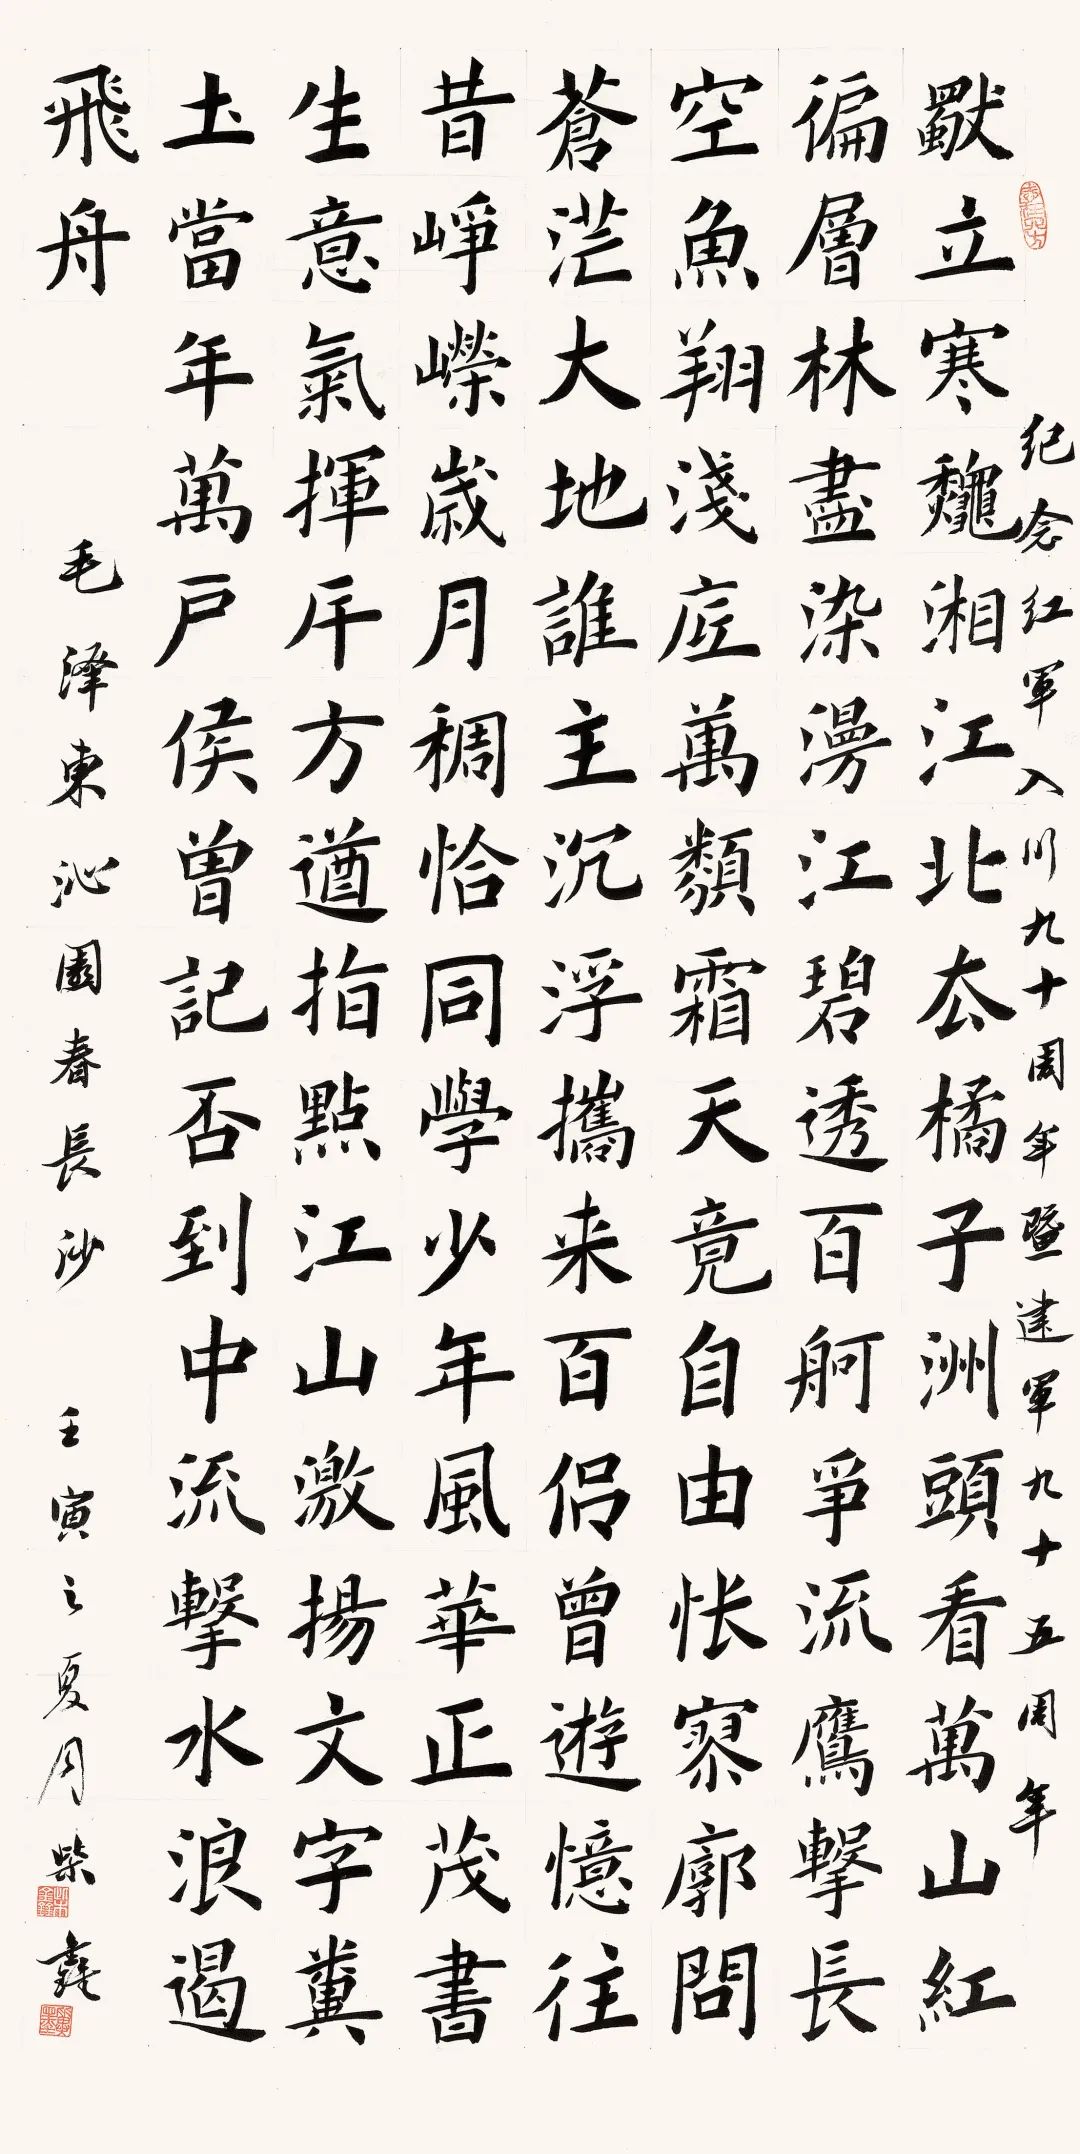 纪念红軍入川九十周年暨建軍九十五周年
獨立寒龝湘江北去橘子洲頭看萬山紅
徧層林盡染漫江碧透百舸爭流鷹擊長
空魚翔淺底萬類霜天竟自由怅寥廓問
蒼茫大地誰主沉浮攜来百侣曾遊憶往
昔崢嶸歲月稠恰同學少年風華正茂書
生意氣揮斥方遒指點江山激揚文字糞
土當年萬户侯曾記否到中流擊水浪遏
飛舟
毛泽東沁園春長沙 壬寅之夏月柴